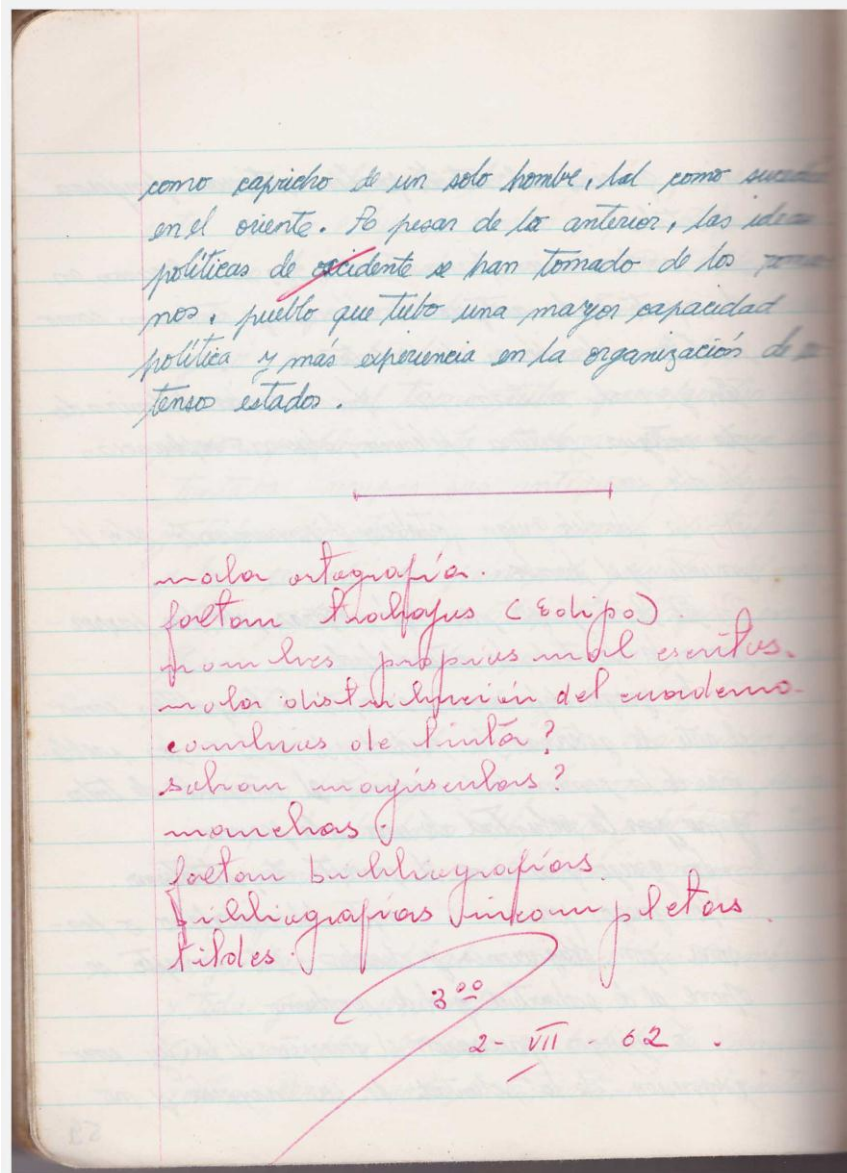 como capricho de un solo hombre, tal como
en el oriente. A pesar de lo anterior, las ideas
políticas de occidente se han tomado de los roma
nos, pueblo que tubo una mayor capacidad
política y más experiencia en la organización de
tensos estados.
mala ortografía.
faltan trabajos (Edipo)
nombres propios mal escritos.
mala distribución del cuaderno.
cambios de tinta?
sobran mayúsculas?
manchas.
faltan bibliografías.
bibliografías incompletas.
tildes.
3.00
2 - VII - 62.